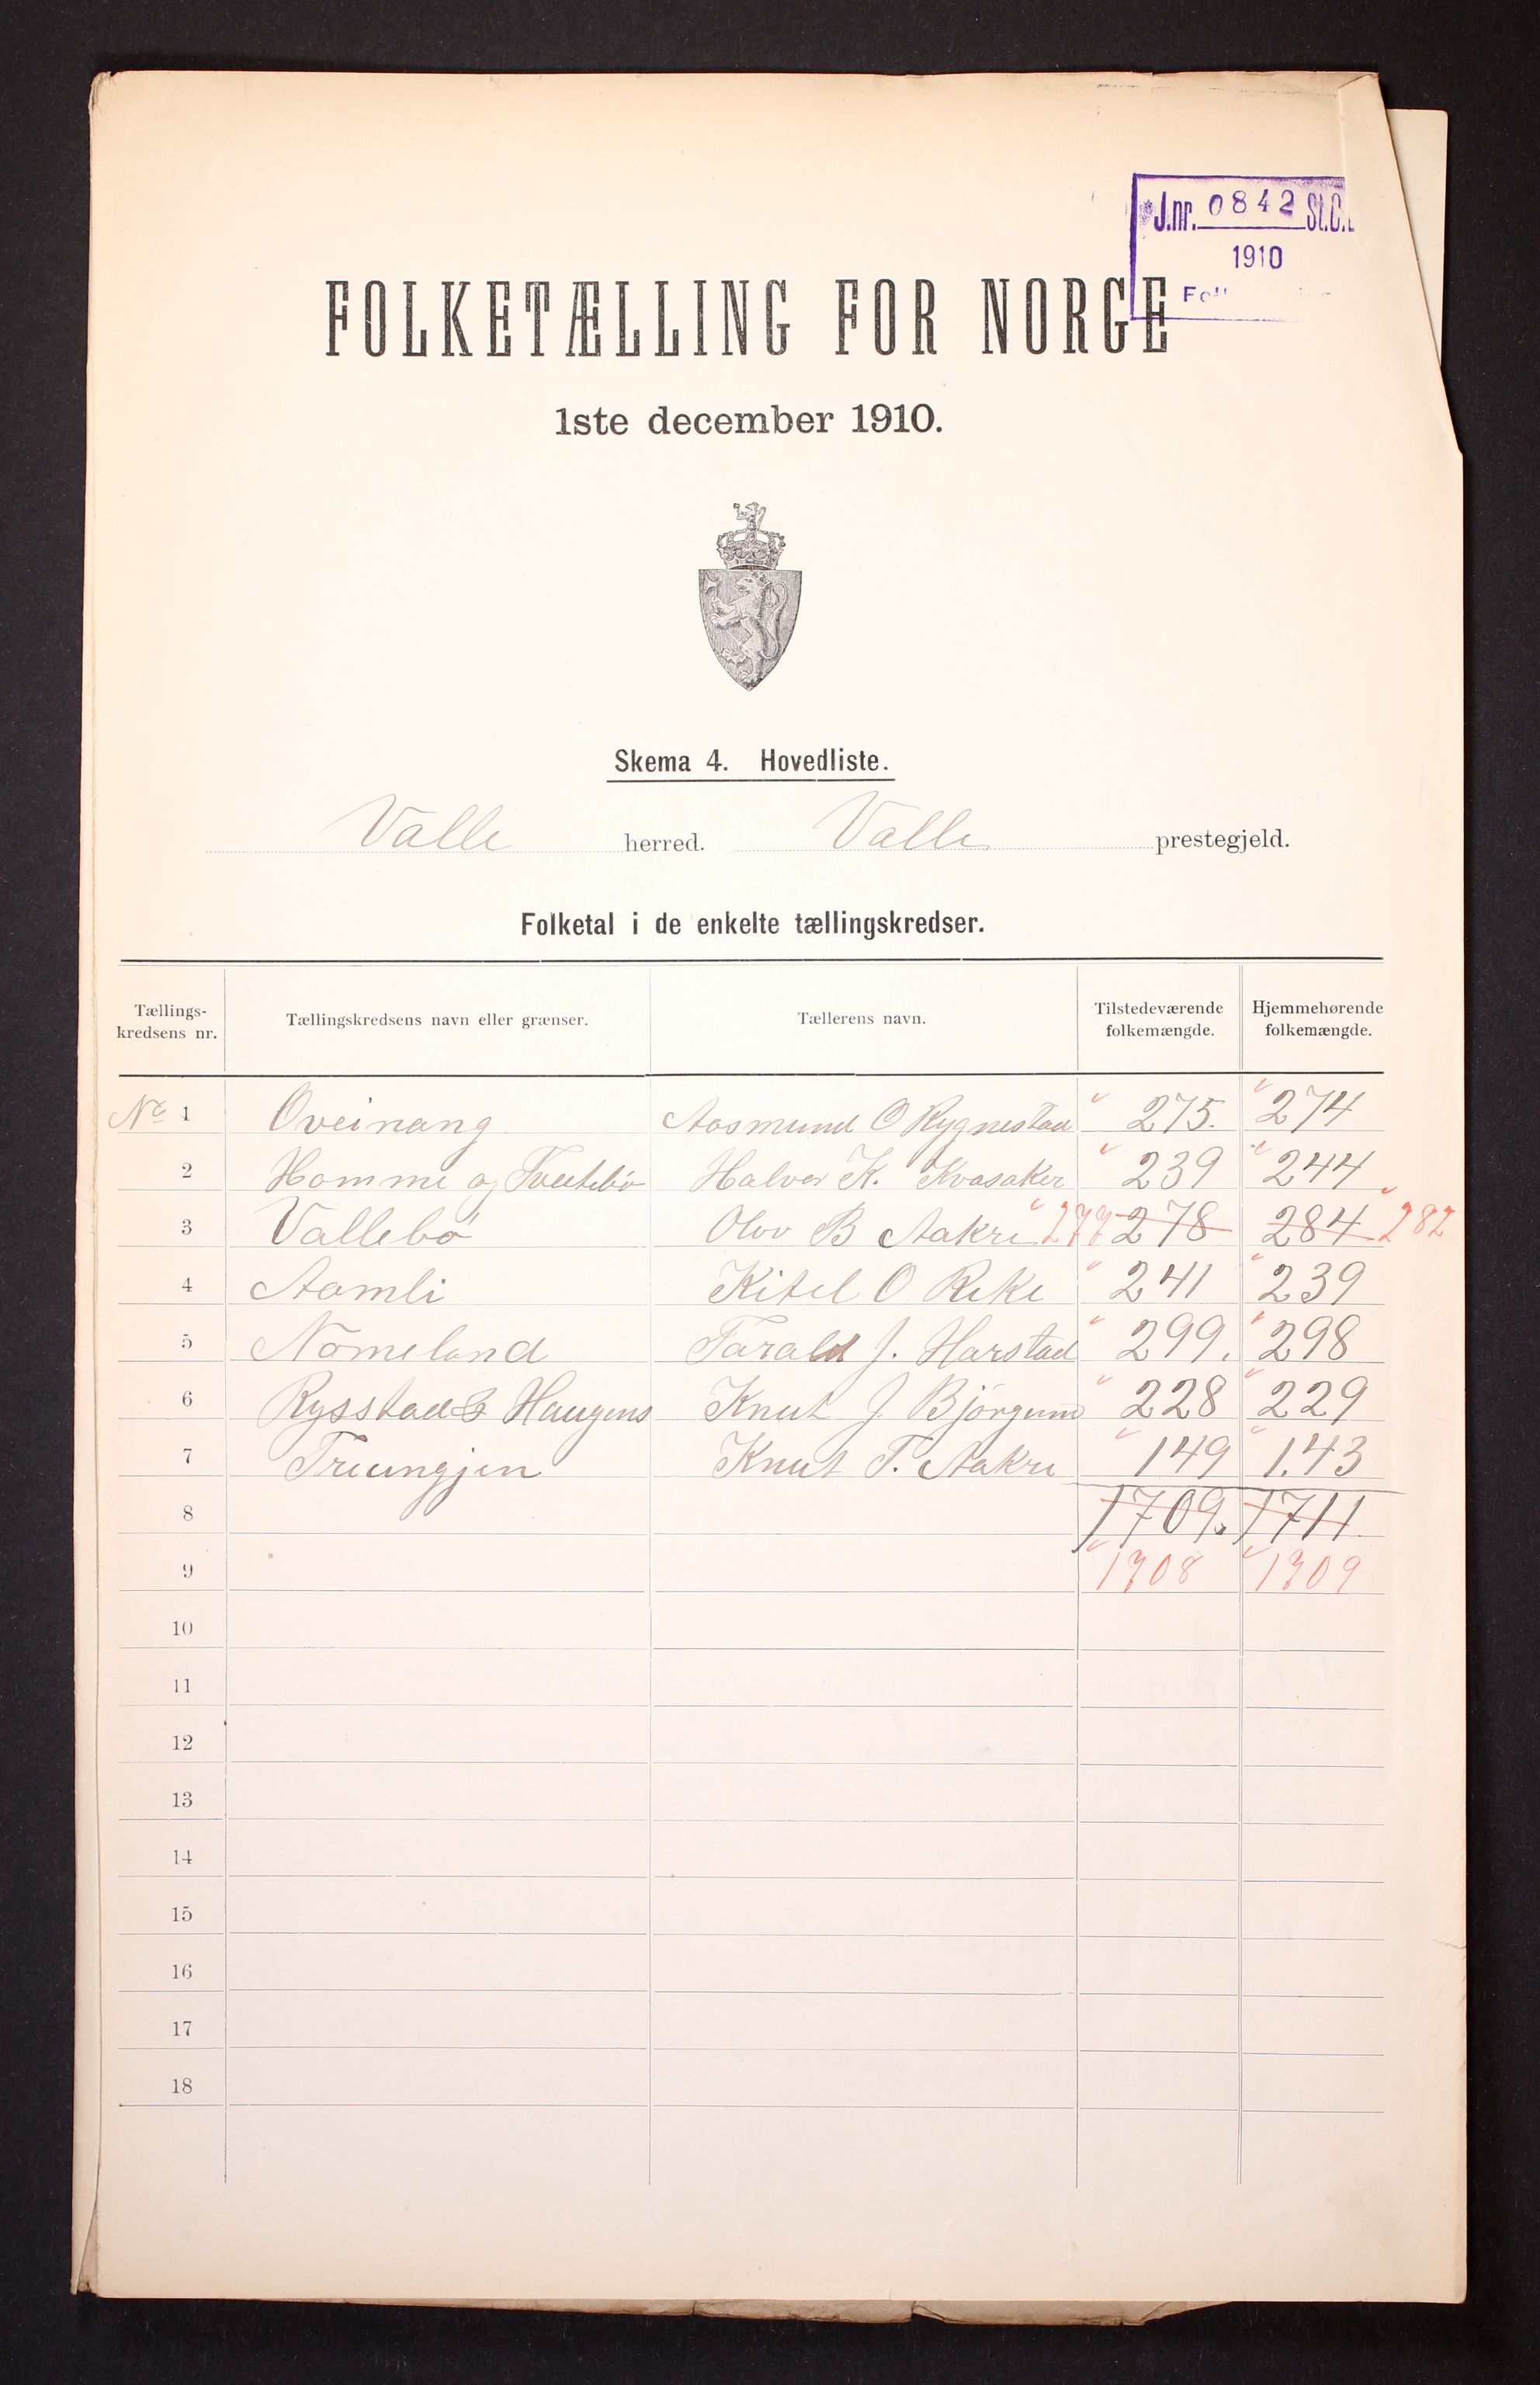 J.nr. 0842 St.C.
1910
FOLKETÆLLING FOR NORGE
1ste december 1910.
Skema 4. Hovedliste.
Valle herred. Valle prestegjeld.
Folketal i de enkelte tællingskredser.
Tællings-kredsens nr. Tællingskredsens navn eller grænser. Tællerens navn. Tilstedeværende folkemængde. Hjemmehørende folkemængde.
No 1 Oveinang Aasmund O Rygnestad 275. 274
2 Homme og Tveitebö Halvor K. Kvasaker 239 244
3 Vallebö Olov B Aakre 277 278 284 282
4 Aamli Kitel O Rike 241 239
5 Nomeland Tarald J. Harstad 299. 298
6 Rysstad & Haugens Knut J Björgum 228 229
7 Treungjen Knut T. Aakre 149 1.43
8 1709. 1711.
9 1708 1709
10
11
12
13
14
15
16
17
18